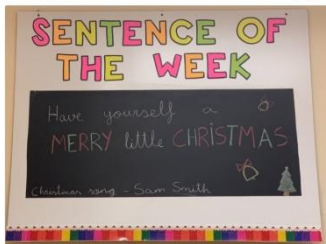 SENTENCE OF
THE WEEK
Have yourself a
MERRY little CHRISTMAS
Christmas song - Sam Smith